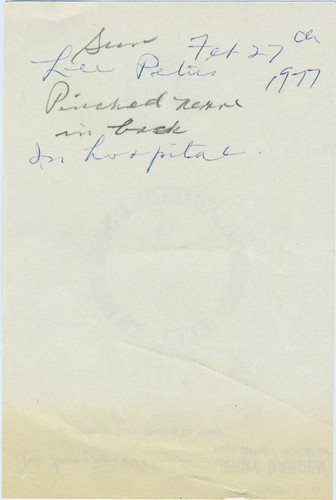 Sun Feb 27th
Lee Petus 1977
Pinched nerve
in back
In hospital.